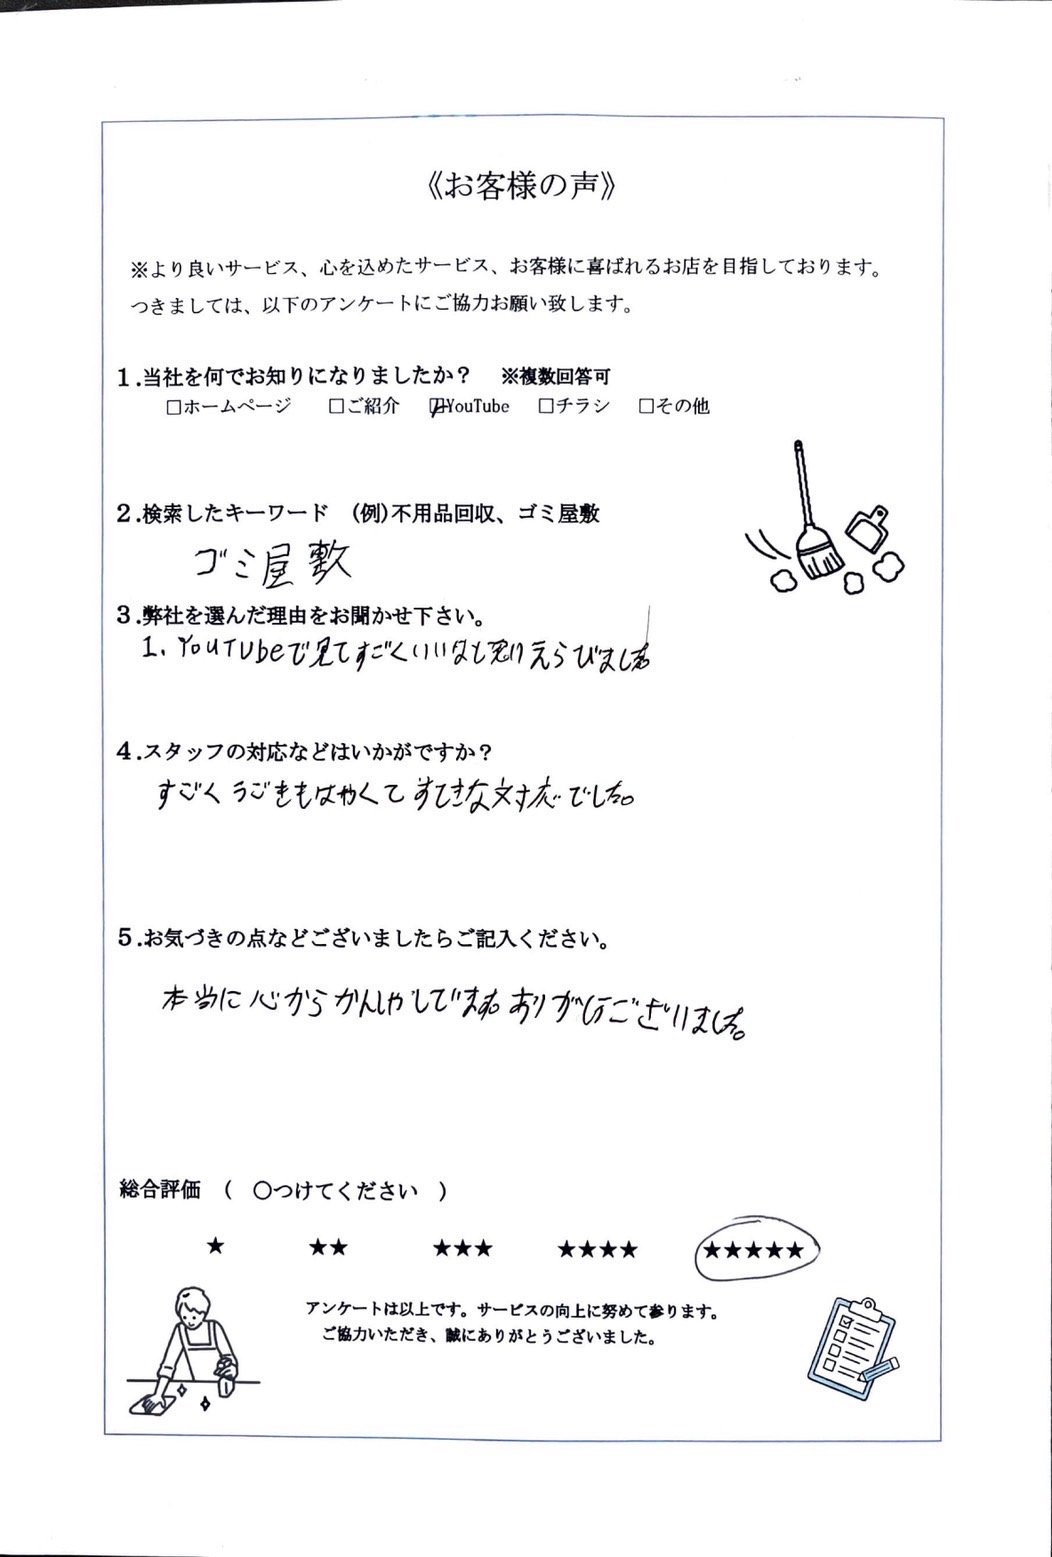 《お客様の声》
※より良いサービス、心を込めたサービス、お客様に喜ばれるお店を目指しております。
つきましては、以下のアンケートにご協力お願い致します。
1.当社を何でお知りになりましたか？　※複数回答可
□ホームページ　□ご紹介　☑YouTube　□チラシ　□その他
2.検索したキーワード　(例)不用品回収、ゴミ屋敷
ゴミ屋敷
3.弊社を選んだ理由をお聞かせ下さい。
1. YouTubeで見てすごくいいなと思いえらびました
4.スタッフの対応などはいかがですか？
すごくうごきもはやくてすてきな対応でした。
5.お気づきの点などございましたらご記入ください。
本当に心からかんしゃしてます。ありがとうございました。
総合評価　（　〇つけてください　）
★　★★　★★★　★★★★　★★★★★
アンケートは以上です。サービスの向上に努めて参ります。
ご協力いただき、誠にありがとうございました。